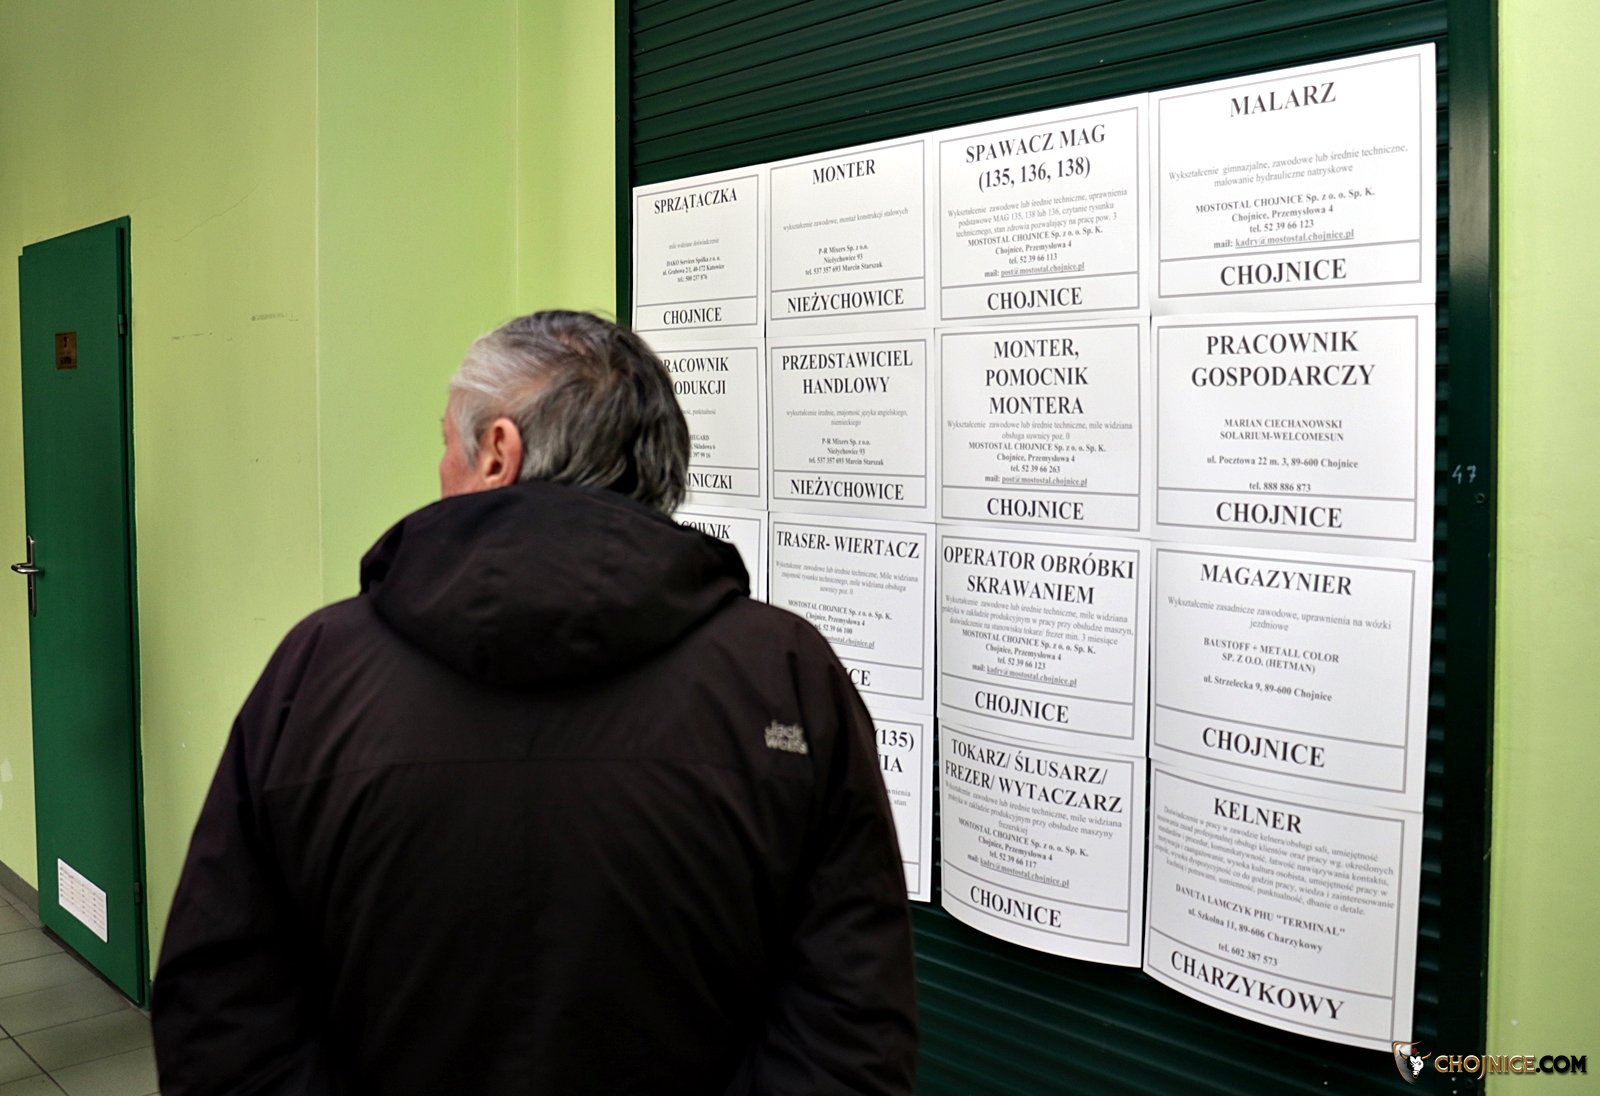 SPRZĄTACZKA
mile widziane doświadczenie
DAKO Services Spółka z o. o.
ul. Grabowa 2/1, 40-172 Katowice
tel.: 500 237 876
CHOJNICE
MONTER
wykształcenie zawodowe, montaż konstrukcji stalowych
P-R Mixers Sp. z o.o.
Nieżychowice 93
tel. 537 357 693 Marcin Starszak
NIEŻYCHOWICE
SPAWACZ MAG
(135, 136, 138)
Wykształcenie zawodowe lub średnie techniczne, uprawnienia
podstawowe MAG 135, 138 lub 136, czytanie rysunku
technicznego, stan zdrowia pozwalający na pracę pow. 3
MOSTOSTAL CHOJNICE Sp. z o. o. Sp. K.
Chojnice, Przemysłowa 4
tel. 52 39 66 113
mail: post@mostostal.chojnice.pl
CHOJNICE
MALARZ
Wykształcenie gimnazjalne, zawodowe lub średnie techniczne,
malowanie hydrauliczne natryskowe
MOSTOSTAL CHOJNICE Sp. z o. o. Sp. K.
Chojnice, Przemysłowa 4
tel. 52 39 66 123
mail: kadry@mostostal.chojnice.pl
CHOJNICE
RACOWNIK
ODUKCJI
punktualność
NICZKI
PRZEDSTAWICIEL
HANDLOWY
wykształcenie średnie, znajomość języka angielskiego,
niemieckiego
P-R Mixers Sp. z o.o.
Nieżychowice 93
tel. 537 357 693 Marcin Starszak
NIEŻYCHOWICE
MONTER,
POMOCNIK
MONTERA
Wykształcenie zawodowe lub średnie techniczne, mile widziana
obsługa suwnicy poz. 0
MOSTOSTAL CHOJNICE Sp. z o. o. Sp. K.
Chojnice, Przemysłowa 4
tel. 52 39 66 263
mail: post@mostostal.chojnice.pl
CHOJNICE
PRACOWNIK
GOSPODARCZY
MARIAN CIECHANOWSKI
SOLARIUM-WELCOMESUN
ul. Pocztowa 22 m. 3, 89-600 Chojnice
tel. 888 886 873
CHOJNICE
OWNIK
TRASER- WIERTACZ
Wykształcenie zawodowe lub średnie techniczne, Mile widziana
znajomość rysunku technicznego, mile widziana obsługa
suwnicy poz. 0
MOSTOSTAL CHOJNICE Sp. z o. o. Sp. K.
Chojnice, Przemysłowa 4
tel. 52 39 66 100
mostostal.chojnice.pl
CE
OPERATOR OBRÓBKI
SKRAWANIEM
Wykształcenie zawodowe lub średnie techniczne, mile widziana
praktyka w zakładzie produkcyjnym w pracy przy obsłudze maszyn,
doświadczenie na stanowisku tokarz/ frezer min. 3 miesiące
MOSTOSTAL CHOJNICE Sp. z o. o. Sp. K.
Chojnice, Przemysłowa 4
tel. 52 39 66 123
mail: kadry@mostostal.chojnice.pl
CHOJNICE
MAGAZYNIER
Wykształcenie zasadnicze zawodowe, uprawnienia na wózki
jezdniowe
BAUSTOFF + METALL COLOR
SP. Z O.O. (HETMAN)
ul. Strzelecka 9, 89-600 Chojnice
CHOJNICE
(135)
IA
stan
TOKARZ/ ŚLUSARZ/
FREZER/ WYTACZARZ
Wykształcenie zawodowe lub średnie techniczne, mile widziana
praktyka w zakładzie produkcyjnym przy obsłudze maszyny
frezerskiej
MOSTOSTAL CHOJNICE Sp. z o. o. Sp. K.
Chojnice, Przemysłowa 4
tel. 52 39 66 117
mail: kadry@mostostal.chojnice.pl
CHOJNICE
KELNER
Doświadczenie w pracy w zawodzie kelnera/obsługi sali, umiejętność
stosowania zasad profesjonalnej obsługi klientów oraz pracy wg. określonych
standardów i procedur, komunikatywność, łatwość nawiązywania kontaktu,
motywacja i zaangażowanie, wysoka kultura osobista, umiejętność pracy w
zespole, wysoka dyspozycyjność co do godzin pracy, wiedza i zainteresowanie
kuchnią i potrawami, sumienność, punktualność, dbanie o detale.
DANUTA LAMCZYK PHU "TERMINAL"
ul. Szkolna 11, 89-606 Charzykowy
tel. 602 387 573
CHARZYKOWY
47
Jack
Wolfs
CHOJNICE.COM